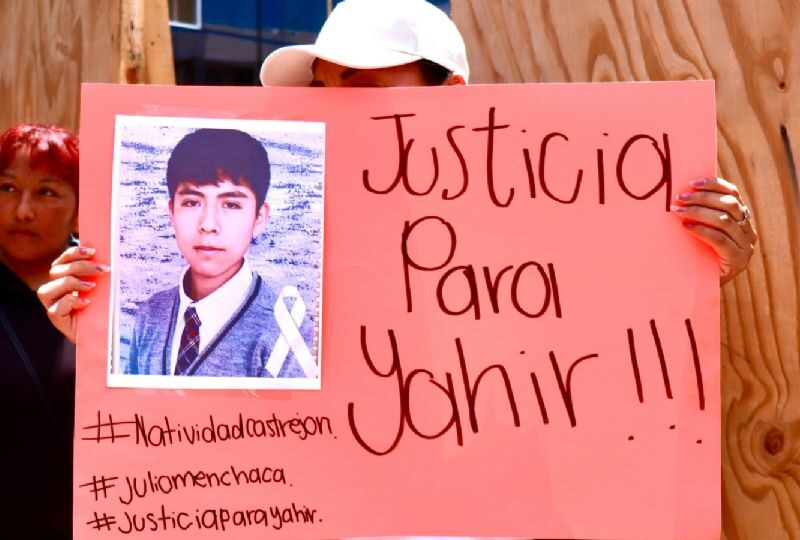 Justicia
Para
Yahir!!!
#Natividadcastrejon.
#juliomenchaca.
#justiciaparayahir.